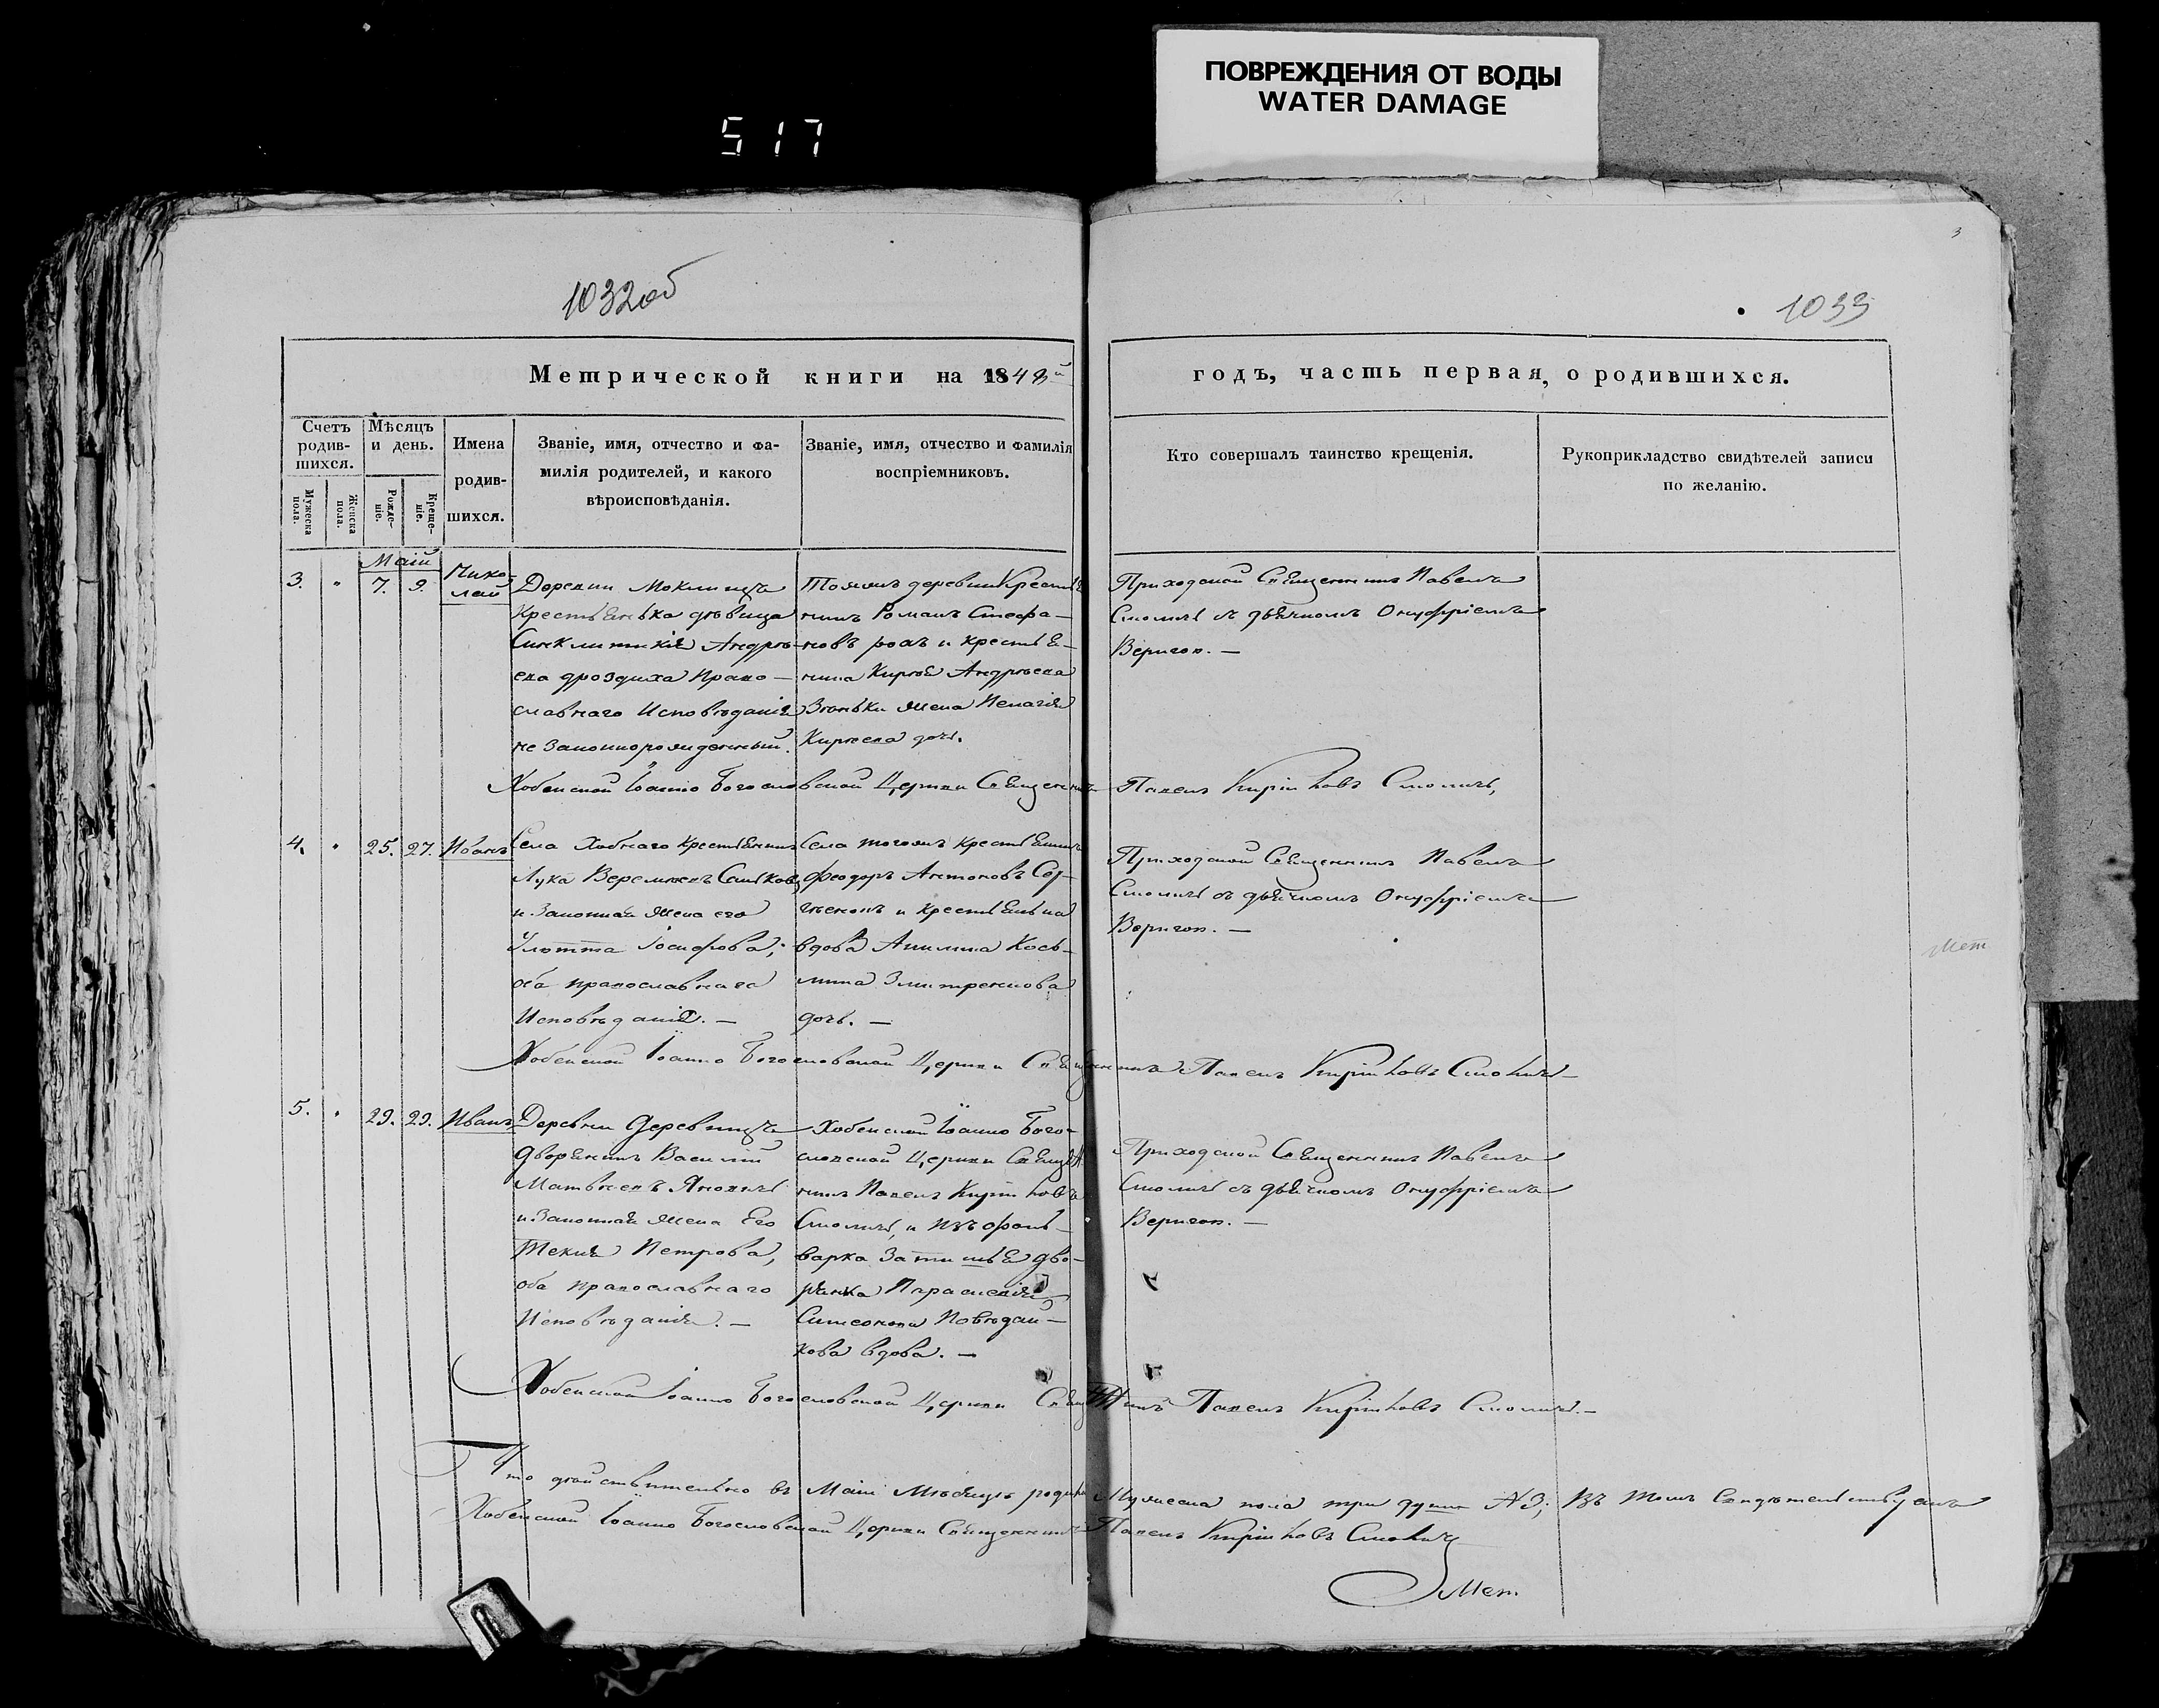 ПОВРЕЖДЕНИЯ ОТ ВОДЫ
WATER DAMAGE
517
3
1032об
1033
Метрической книги на 1848й
годъ, часть первая, о родившихся.
Счетъ родив-шихся.
Мужеска пола.
Женска пола.
Мѣсяцъ и день.
Рожде-ніе.
Креще-ніе.
Имена родив-шихся.
Званіе, имя, отчество и фа-
милія родителей, и какого
вѣроисповѣданія.
Званіе, имя, отчество и фамилія
воспріемниковъ.
Кто совершалъ таинство крещенія.
Рукоприкладство свидѣтелей записи
по желанію.
Маіи
3. " 7. 9. Нико-лай
Деревни Моклищъ
Крестьянка дѣвица
Синклитикія Андрѣ-
ева дроздиха право-
славнаго Исповѣданія
не законнорожденный.
Тояжъ деревни Крестья
нинъ Романъ Стефа-
новъ и крестья-
нина Андрѣева
жена Пелагія
дочь.
Приходской Священникъ Павелъ
Смоличъ съ дьячкомъ Онуфріемъ
Веригою. —
Хобенской Іоанно Богословской Церкви Священникъ Павелъ Смоличъ,
4. " 25. 27. Иванъ
Села Хабнаго крестьянинъ
Лука
и законная жена его
Іосифова,
оба православнаго
Исповѣданія. —
Села тогожъ крестьянинъ
Феодоръ Антоновъ
и крестьянка
вдова Кось-
мина
дочь. —
Приходской Священникъ Павелъ
Смоличъ съ дьячкомъ Онуфріемъ
Веригою. —
Хобенской Іоанно Богословской Церкви Священникъ Павелъ Смоличъ —
Мет
5. " 29. 29. Иванъ
Деревни
дворянинъ Василій
Матвѣевъ Яновичъ
и законная жена Его
Текля Петрова,
оба православнаго
Исповѣданія. —
Хобенской Іоанно Бого-
словской Церкви Священ
никъ Павелъ
Смоличъ, и изъ фоль-
варка дво-
рянка Параскевія
Симеонова
вдова. —
Приходской Священникъ Павелъ
Смоличъ съ дьячкомъ Онуфріемъ
Веригою. —
Хобенской Іоанно Богословской Церкви Священникъ Павелъ Смоличъ. —
Что дѣйствительно въ Маіи Мѣсяцѣ Мужеска пола три души №3; въ томъ Свидѣтельствуемъ
Хобенской Іоанно Богословской Церкви Священникъ Павелъ Смоличъ
Мет.